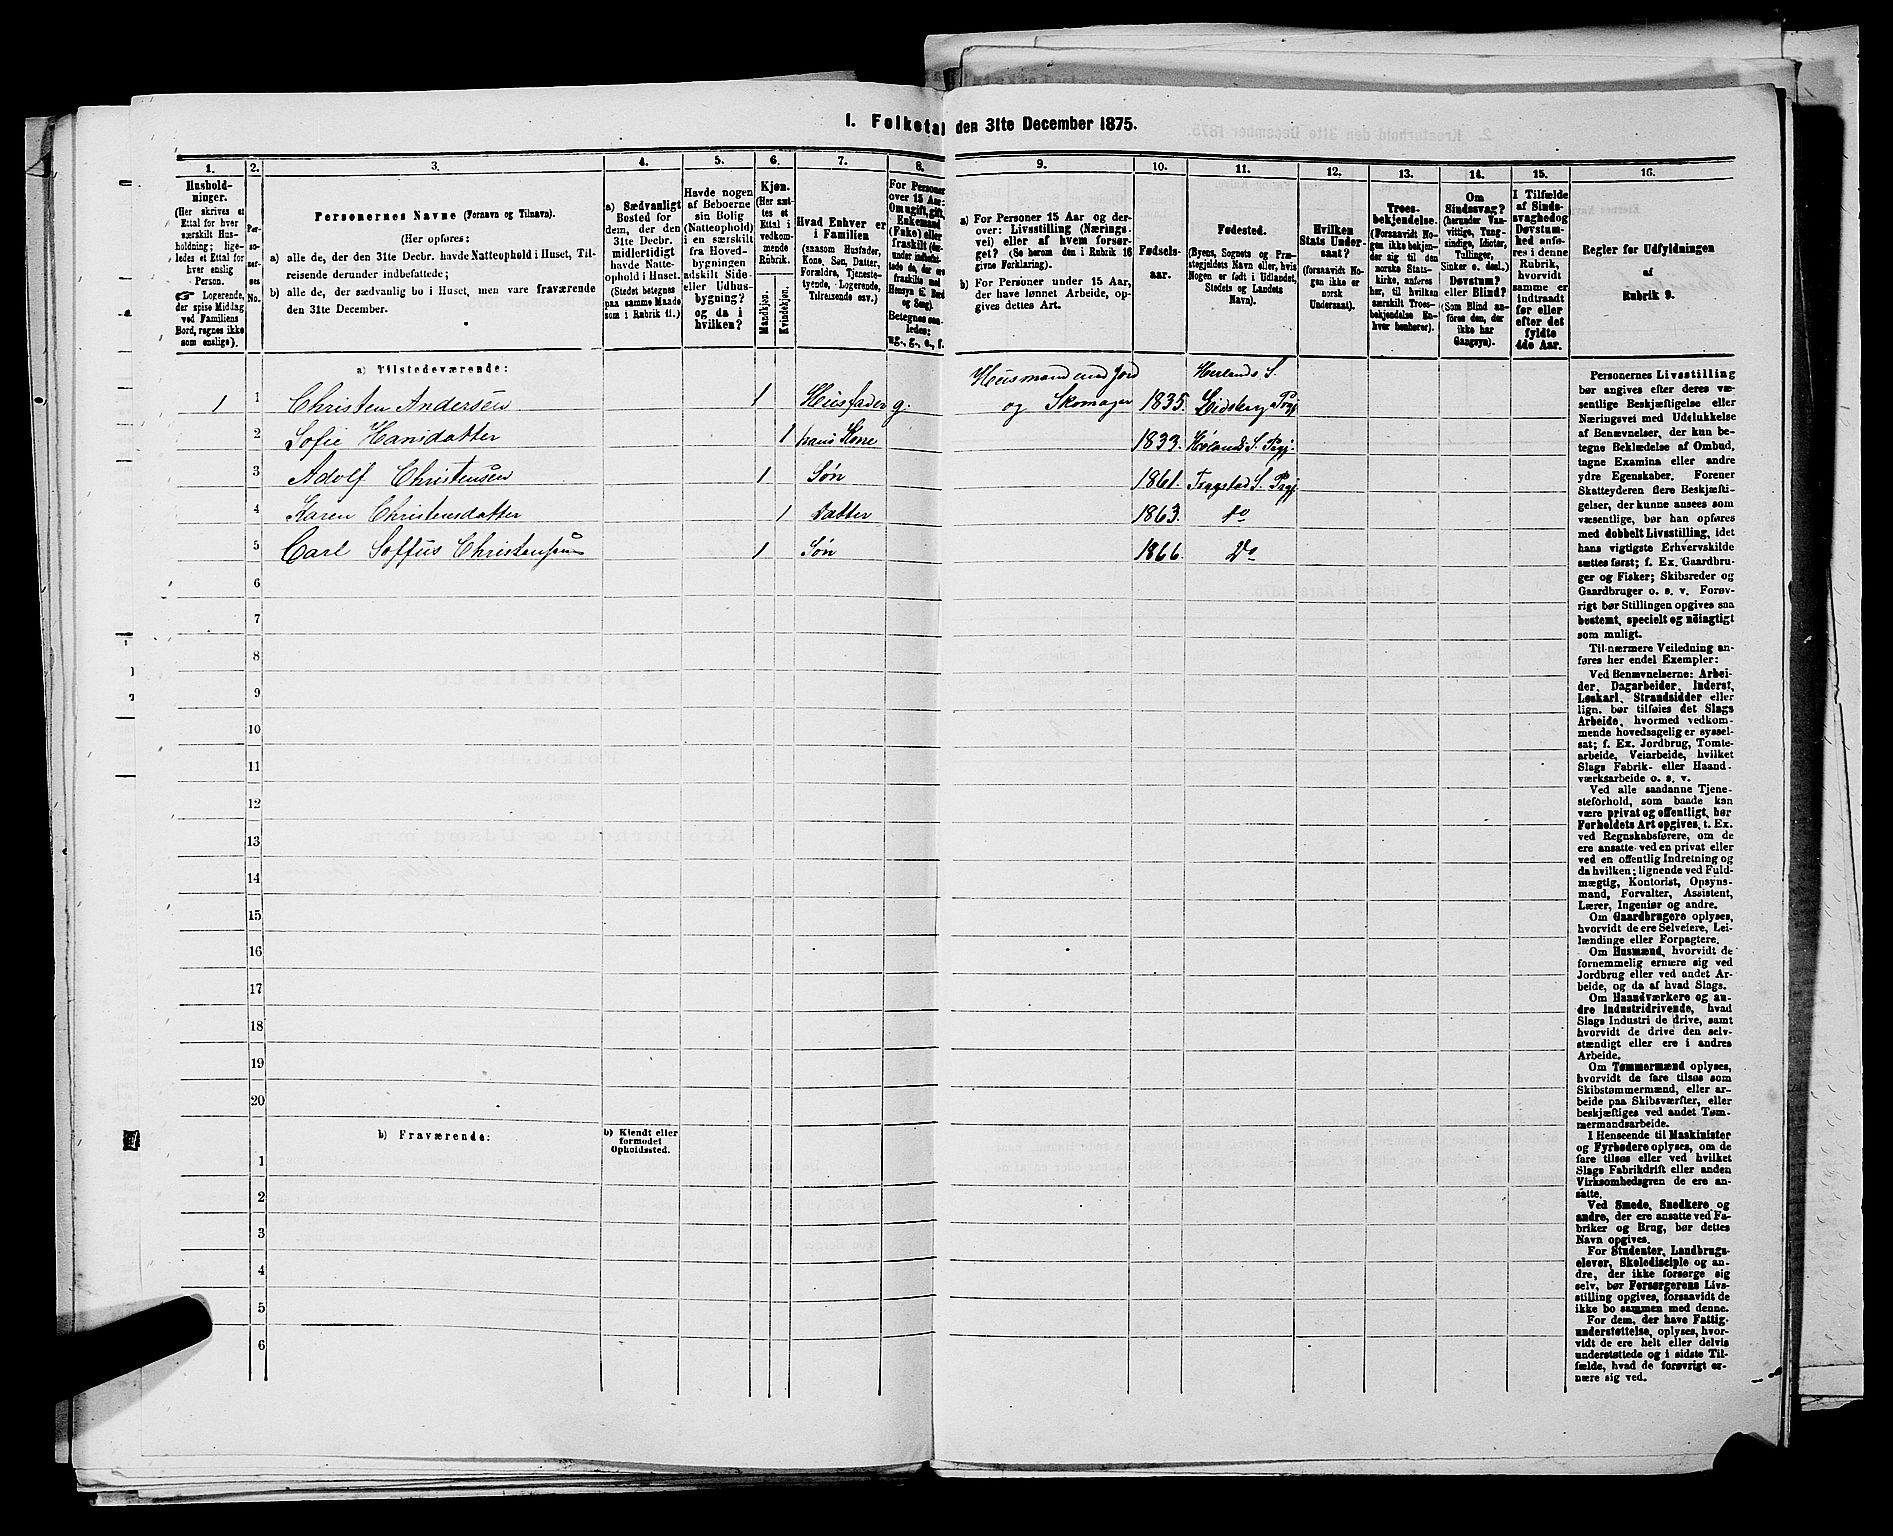 1. Folketal den 31te December 1875.
1.
2.
3.
4.
5.
6.
7.
8.
9.
10.
11.
12.
13.
14.
15.
16.
Hushold-
ninger.
(Her skrives et
Ettal for hver
særskilt Hus-
holdning; lige-
ledes et Ettal for
hver enslig
Person.
☞ Logerende,
der spise Middag
ved Familiens
Bord, regnes ikke
som enslige).
Per-
so-
ner-
nes
No.
Personernes Navne (Fornavn og Tilnavn).
(Her opføres:
a) alle de, der den 31te Decbr. havde Natteophold i Huset, Til-
reisende derunder indbefattede;
b) alle de, der sædvanlig bo i Huset, men vare fraværende
den 31te December.
a) Sædvanligt
Bosted for
dem, der den
31te Decbr.
midlertidigt
havde Natte-
ophold i Huset.
(Stedet betegnes
paa samme Maade
som i Rubrik 11.)
Havde nogen
af Beboerne
sin Bolig
(Natteophold)
i en særskilt
fra Hoved-
bygningen
adskilt Side-
eller Udhus-
bygning?
og da i
hvilken?
Kjøn.
(Her sæt-
tes et
Ettal i
vedkom-
mende
Rubrik.
Mandkjøn.
Kvindekjøn.
Hvad Enhver er
i Familien
(saasom Husfader,
Kone, Søn, Datter,
Forældre, Tjeneste-
tyende, Logerende,
Tilreisende osv.)
For Personer
over 15 Aar:
Om ugift, gift,
Enkemand
(Enke) eller
fraskilt
Betegnes saa-
ledes:
ug., g., e., f.
a) For Personer 15 Aar og der-
over: Livsstilling (Nærings-
vei) eller af hvem forsør-
get? (Se herom den i Rubrik 16
givne Forklaring).
b) For Personer under 15 Aar,
der have lønnet Arbeide, op-
gives dettes Art.
Fødsels-
aar.
Fødested.
(Byens, Sognets og Præ-
stegjeldets Navn eller, hvis
Nogen er født i Udlandet,
Stedets og Landets
Navn).
Hvilken
Stats Under-
saat?
(forsaavidt No-
gen ikke er
norsk
Undersaat).
Troes-
bekjendelse.
(Forsaavidt No-
gen ikke bekjen-
der sig til den
norske Stats-
kirke, anføres
her, til hvilken
særskilt Troes-
bekjendelse En-
hver henhører).
Om
Sindssvag?
(herunder Van-
vittige, Tung-
sindige, Idioter,
Tullinger,
Sinker o. desl.)
Døvstum?
eller Blind?
(Som Blind an-
føres den, der
ikke har
Gangsyn).
I Tilfælde
af Sinds-
svaghed og
Døvstum-
hed anfø-
res i denne
Rubrik,
hvorvidt
samme er
indtraadt
før eller
efter det
fyldte
4de Aar.
Regler for Udfyldningen
af
Rubrik 9.
a) Tilstedeværende:
1 1 Christen Andersen 1 Husfader g. Husmand med Jord og Skomager 1835. Herlands S. Eidsberg Prgj.
2 Sofie Hansdatter 1 hans Kone 1833. Hølands S. Prgj.
3 Adolf Christensen 1 Søn 1861. Trygstad S. Prgj.
4 Karen Christensdatter 1 Datter 1863. do
5 Carl Soffus Christensen 1 Søn 1866. Do
6
7
8
9
10
11
12
13
14
15
16
17
18
19
20
b) Fraværende:
b) Kjendt eller
formodet
Opholdssted.
1
2
3
4
5
6
Personernes Livsstilling
bør angives efter deres væ-
sentlige Beskjæftigelse eller
Næringsvei med Udelukkelse
af Benævnelser, der kun be-
tegne Beklædelse af Ombud,
tagne Examina eller andre
ydre Egenskaber. Forener
Skatteyderen flere Beskjæfti-
gelser, der kunne ansees som
væsentlige, bør han opføres
med dobbelt Livsstilling, idet
hans vigtigste Erhvervskilde
sættes først; f. Ex. Gaardbru-
ger og Fisker; Skibsreder og
Gaardbruger o. s. v. Forøv-
rigt bør Stillingen opgives saa
bestemt, specielt og nöiagtigt
som muligt.
Til nærmere Veiledning an-
føres her endel Exempler:
Ved Benævnelserne: Arbei-
der, Dagarbeider, Inderst,
Løskarl, Strandsidder eller
lign. bør tilføies det Slags
Arbeide, hvormed vedkom-
mende hovedsagelig er syssel-
sat; f. Ex. Jordbrug, Tomte-
arbeide, Veiarbeide, hvilket
Slags Fabrik- eller Haand-
værksarbeide o. s. v.
Ved alle saadanne Tjene-
steforhold, som baade kan
være privat og offentligt, bør
Forholdets Art opgives, t. Ex.
ved Regnskabsførere, om de
ere ansatte ved en privat eller
ved en offentlig Indretning og
da hvilken; lignende ved Fuld-
mægtig, Kontorist, Opsyns-
mand, Forvalter, Assistent,
Lærer, Ingeniør og andre.
Om Gaardbrugere oplyses,
hvorvidt de ere Selveiere, Lei-
lændinge eller Forpagtere.
Om Husmænd, hvorvidt de
fornemmelig ernære sig ved
Jordbrug eller ved andet Ar-
beide, og da af hvad Slags.
Om Haandværkere og an-
dre Industridrivende, hvad
Slags Industri de drive, samt
hvorvidt de drive den selv-
stændigt eller ere i andres
Arbeide.
Om Tømmermænd oplyses,
hvorvidt de fare tilsøs som
Skibstømmermænd, eller ar-
beide paa Skibsværfter, eller
beskjæftiges ved andet Tøm-
mermandsarbeide.
I Henseende til Maskinister
og Fyrbødere oplyses, om de
fare tilsøs eller ved hvilket
Slags Fabrikdrift eller anden
Virksomhedsgren de ere an-
satte.
Ved Smede, Snedkere og
andre, der ere ansatte ved Fa-
briker og Brug, bør dettes
Navn opgives.
For Studenter, Landbrugs-
elever, Skoledisciple og an-
dre, der ikke forsørge sig
selv, bør Forsørgerens Livs-
stilling opgives, forsaavidt de
ikke bo sammen med denne.
For dem, der have Fattig-
understøttelse, oplyses, hvor-
vidt de ere helt eller delvis
understøttede og i sidste Til-
fælde, hvad de forøvrigt er-
nære sig ved.